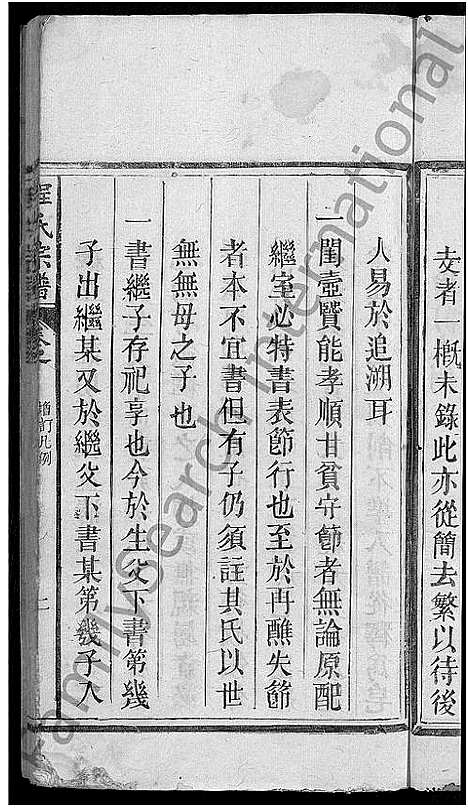 支者一概未錄此亦從簡去繁以待後
人易於追溯耳
一閨壼賢能孝順甘貧守節者無論原配
繼室必特書表節行也至於再醮失節
者本不宜書但有子仍須註其氏以世
無無母之子也
一書繼子存祀享也今於生父下書第幾
子出繼某又於繼父下書某第幾子入
程氏宗譜
卷之
凡例
二
FamilySearch International